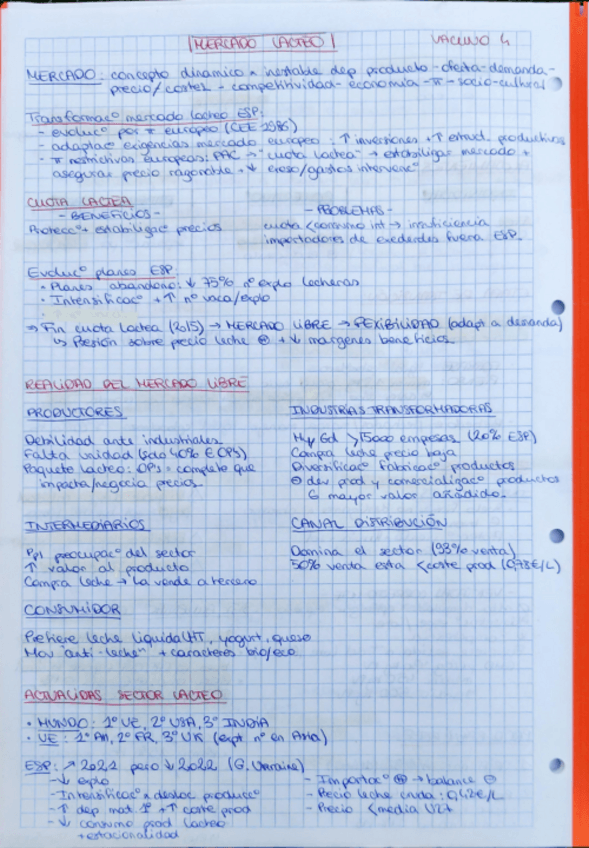 MERCADO LÁCTEO
VACUNO 4
MERCADO: concepto dinamico e inestable dep producto - oferta - demanda -
precio/costes - competitividad - economia - π - socio-cultural
Transformacº mercado lacteo ESP:
- evolucº por π europeo (CEE 1986)
- adaptacº exigencias mercado europeo: ↑ inversiones + ↑ estruct. productivas
- π restrictivas europeas: PAC → "cuota lactea" → estabilizar mercado +
asegurar precio razonable + ↓ exceso/gastos intervencº
CUOTA LACTEA
- BENEFICIOS -
Proteccº + estabilizacº precios
- PROBLEMAS -
cuota < consumo int → insuficiencia
importadores de excedentes fuera ESP.
Evolucº planes ESP:
• Planes abandono: ↓ 75% nº explo lecheras
• Intensificacº + ↑ nº vaca/explo
⇒ Fin cuota lactea (2015) → MERCADO LIBRE → FLEXIBILIDAD (adapt a demanda)
↳ Presión sobre precio leche ⊖ + ↓ margenes beneficios
REALIDAD DEL MERCADO LIBRE
PRODUCTORES
Debilidad ante industriales
Falta unidad (solo 40% € OPs)
Paquete lacteo: OPs = complete que
impacta/negocia precios
INDUSTRIAS TRANSFORMADORAS
Muy Gd >15000 empresas (20% ESP)
Compra leche precio baja
Diversificacº fabricacº productos
⊖ dev prod y comercializacº productos
G mayor valor añadido.
INTERMEDIARIOS
Ppl preocupacº del sector
↑ valor al producto
Compra leche → la vende a tercero
CANAL DISTRIBUCIÓN
Domina el sector (93% venta)
50% venta esta < coste prod (0,73€/L)
CONSUMIDOR
Prefiere leche liquida UHT, yogurt, queso
Mov "anti-leche" + caracteres bio/eco
ACTUALIDAS SECTOR LACTEO
• MUNDO: 1º UE, 2º USA, 3º INDIA
• UE: 1º Am, 2º FR, 3º UK (expt nº en Asia)
ESP: ↗ 2021 pero ↓ 2022 (G. Ucraina)
- ↓ explo
- Intensificacº e desloc produccº
- ↑ dep mat. 1ª + ↑ coste prod
- ↓ consumo prod lacteo
+ estacionalidad
- Importacº ⊕ → balance ⊖
- Precio leche cruda: 0,42€/L
- Precio < media U27